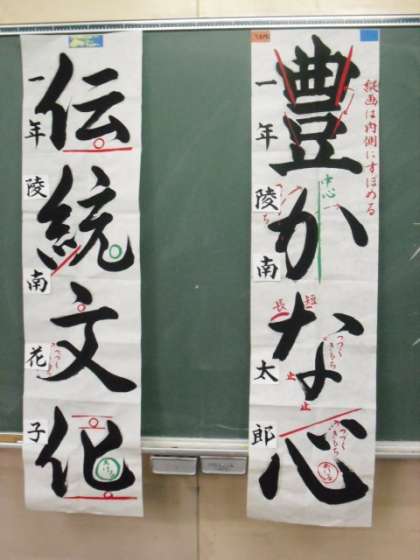 豊かな心
一年 陵南 太郎
縦画は内側にすぼめる
中心
長
短
止
止
つづく
きもち
つづく
きもち
伝統文化
一年 陵南 花子
つづく